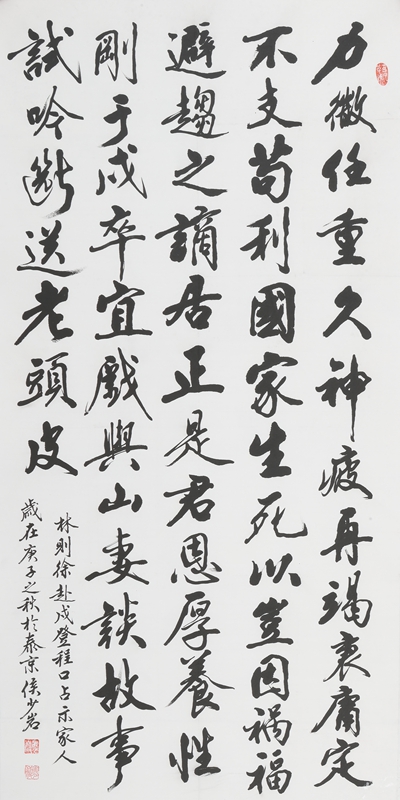 力微任重久神疲再竭衰庸定
不支苟利國家生死以豈因禍福
避趨之謫居正是君恩厚養性
剛于戍卒宜戲與山妻談故事
試吟斷送老頭皮
林則徐赴戍登程口占示家人
歲在庚子之秋於泰京侯少岩